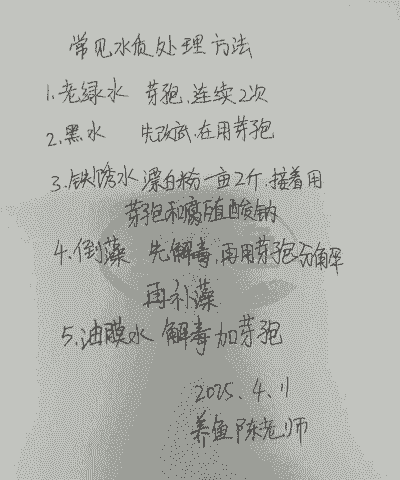 常见水质处理方法
1.老绿水 芽孢,连续2次
2.黑水 先改武,在用芽孢
3.铁锈水 漂白粉一亩2斤,接着用
芽孢和腐殖酸钠
4.倒藻 先解毒,再用芽孢分解
再补藻
5.油膜水 解毒加芽孢
2025.4.11
养鱼陈老师